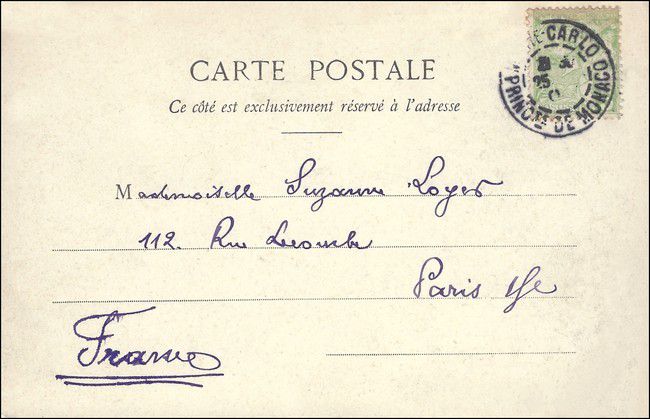 MONTE-CARLO
25
PRINCTÉ DE MONACO
CARTE POSTALE
Ce côté est exclusivement réservé à l'adresse
Mademoiselle Suzanne Loyer
112. Rue Lecourbe
Paris 15e
France